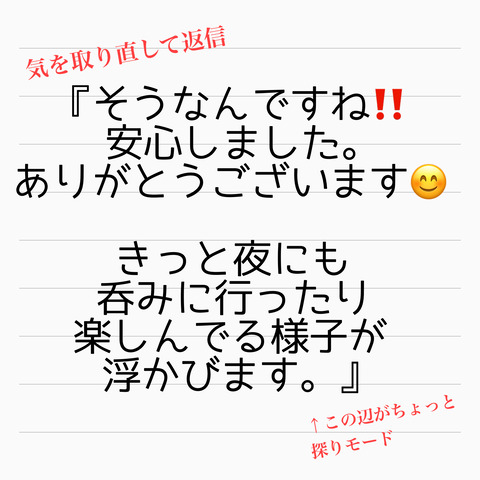 気を取り直して返信
『そうなんですね‼️
安心しました。
ありがとうございます😊
きっと夜にも
呑みに行ったり
楽しんでる様子が
浮かびます。』
↑この辺がちょっと
探りモード